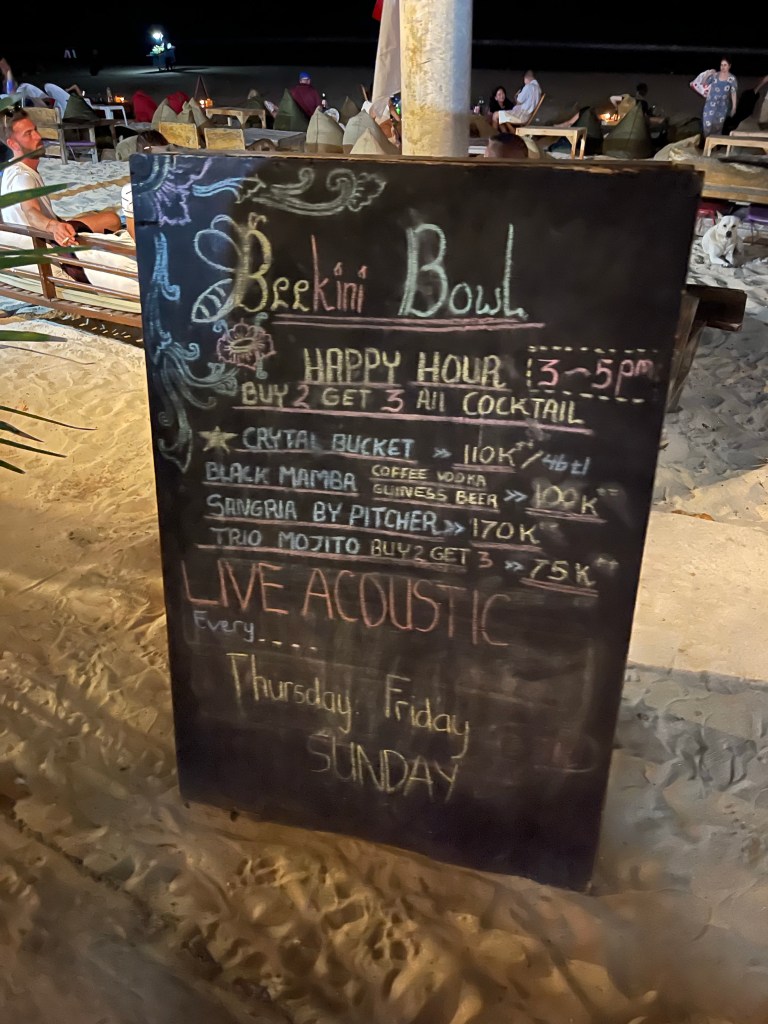 Beekini Bowl
HAPPY HOUR 3~5pm
BUY 2 GET 3 All COCKTAIL
CRYTAL BUCKET » 110K++/4btl
BLACK MAMBA COFFEE VODKA GUINESS BEER » 100K++
SANGRIA BY PITCHER » 170K++
TRIO MOJITO BUY 2 GET 3 » 75K++
LIVE ACOUSTIC
Every....
Thursday. Friday
SUNDAY